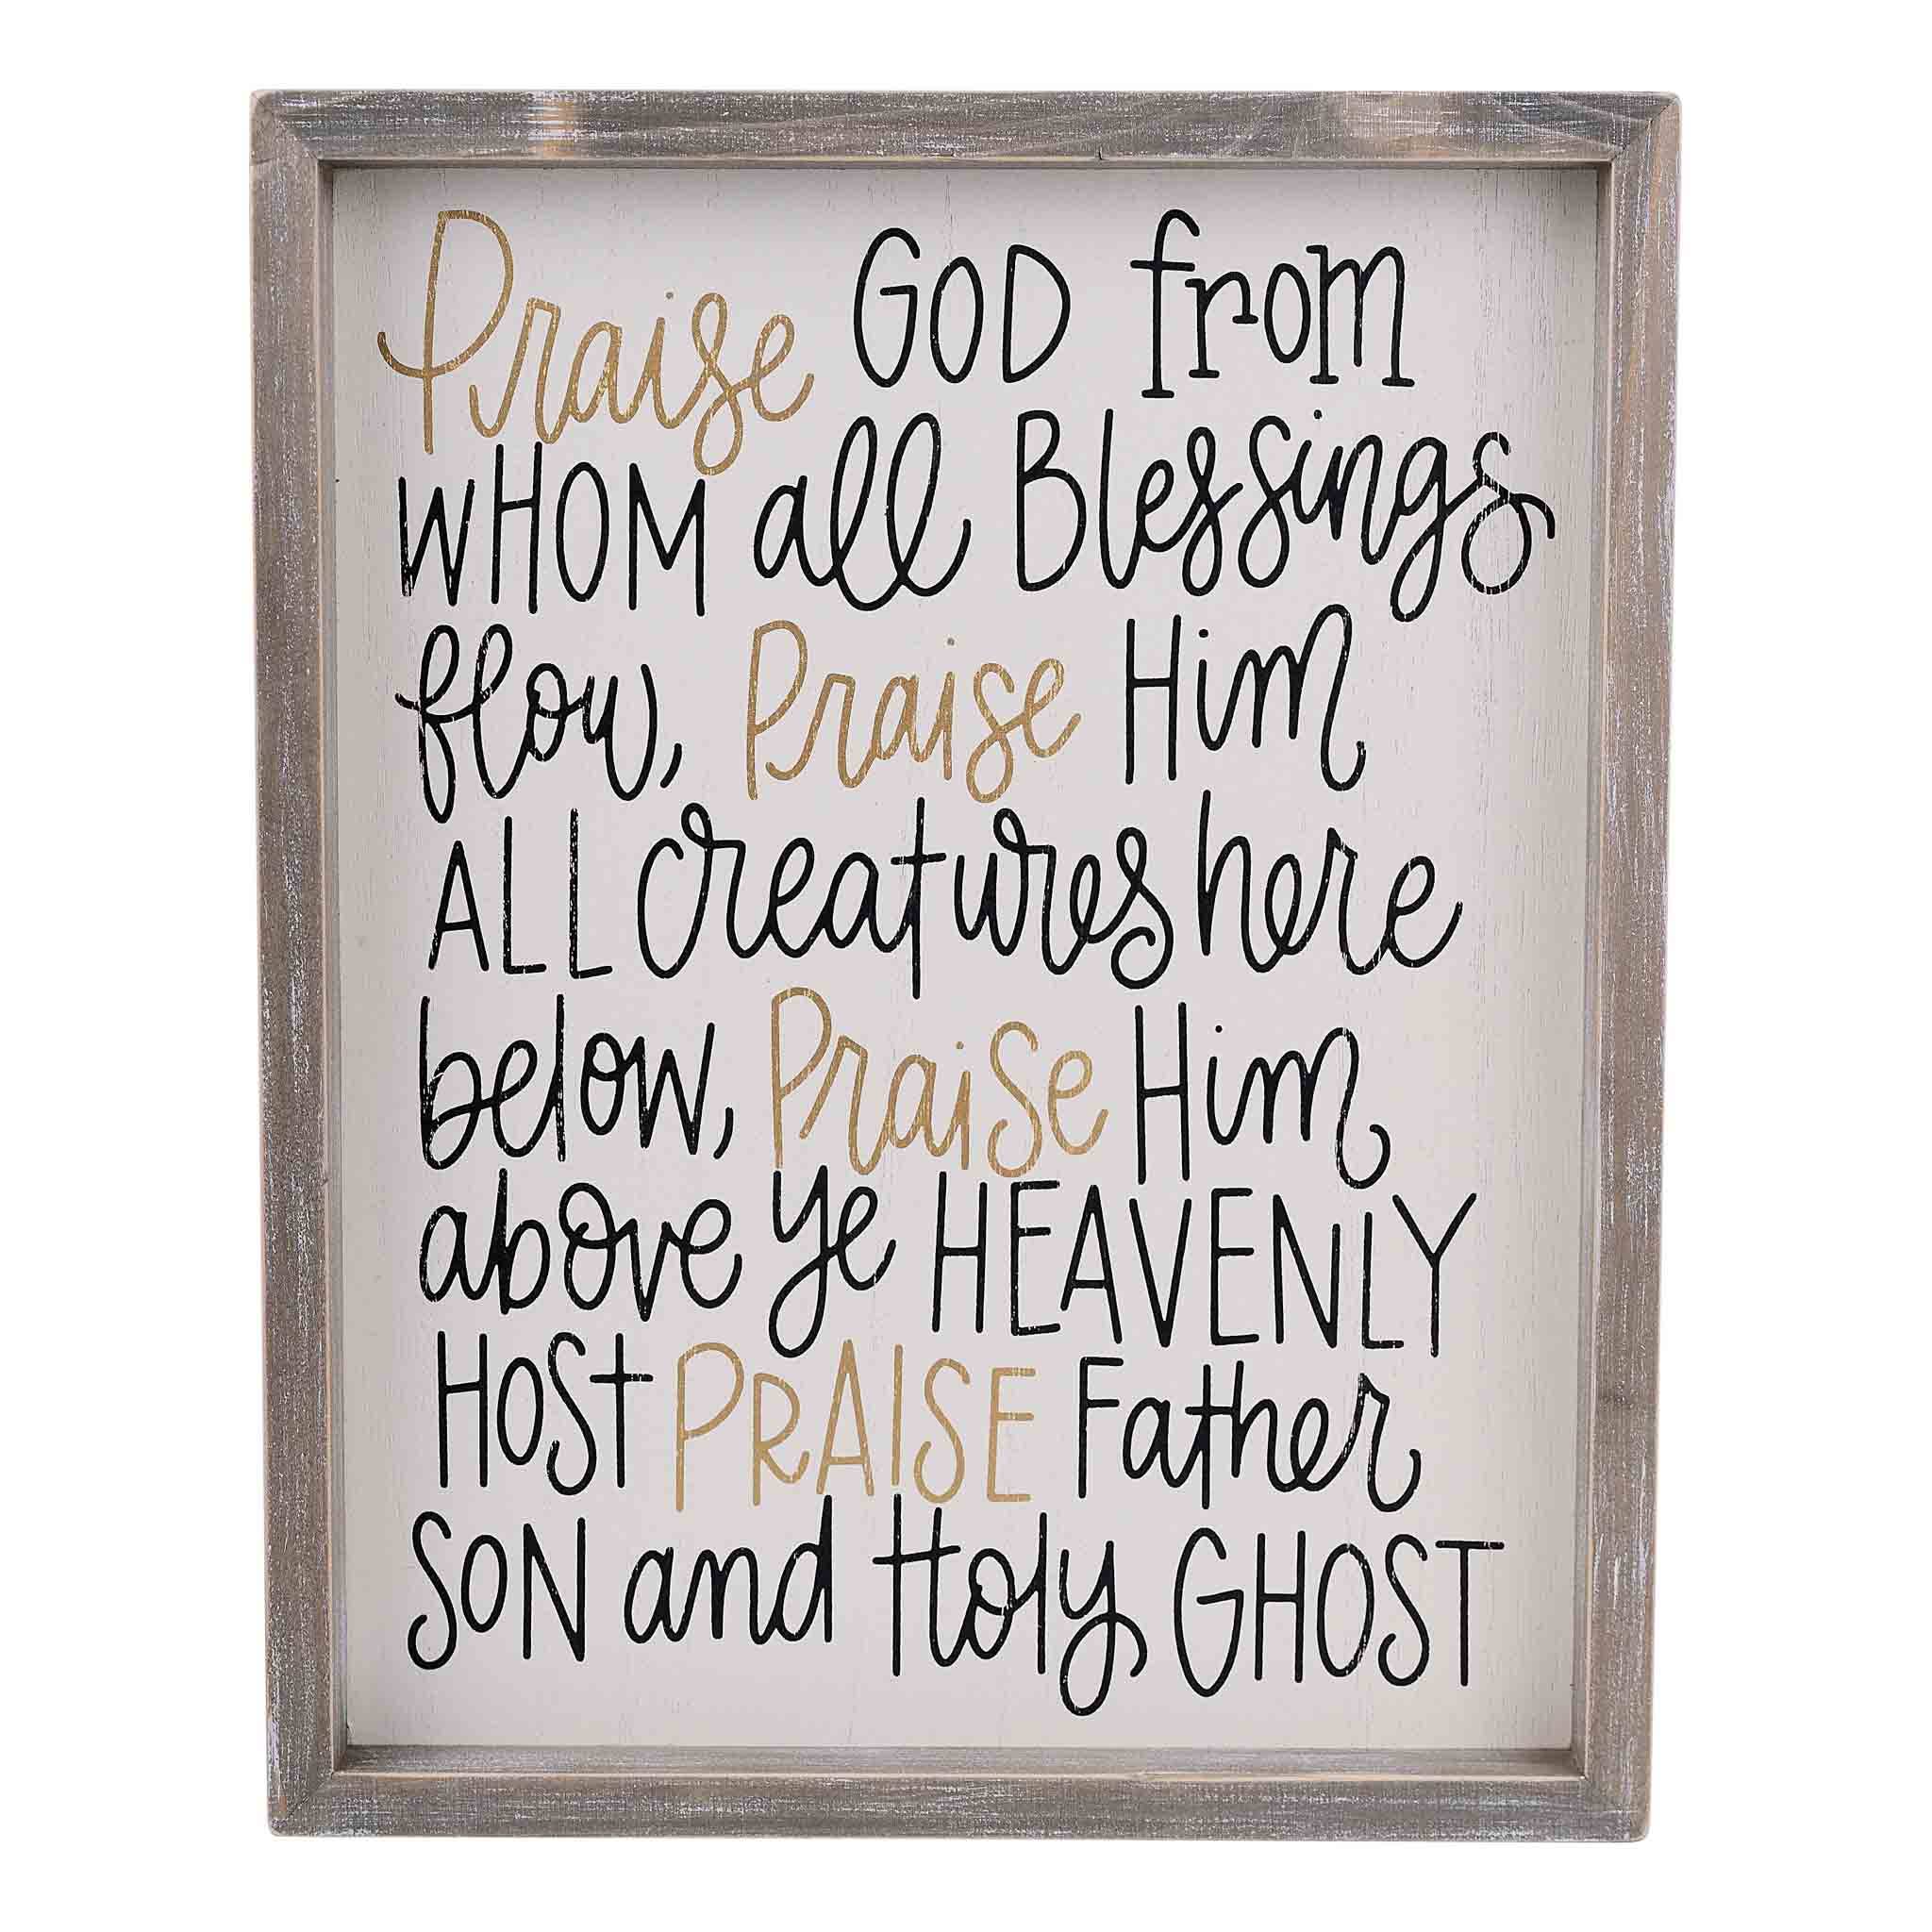 Praise GOD from
WHOM all Blessings
flow, Praise Him
ALL creatures here
below, Praise Him
above ye HEAVENLY
HOSt PRAISE Father
SON and Holy GHOST